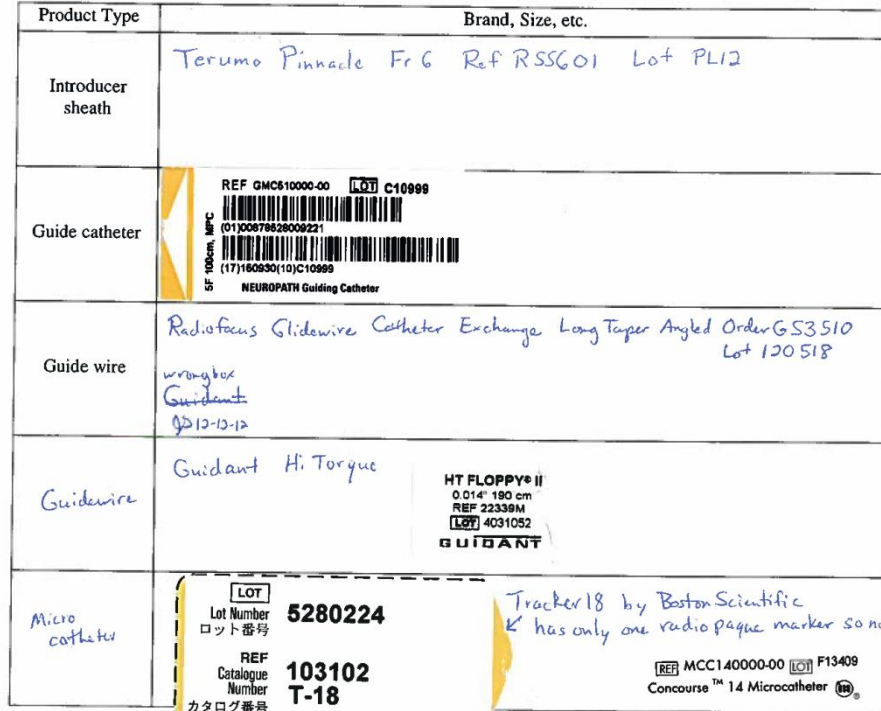 Product Type
Brand, Size, etc.
Introducer sheath
Terumo Pinnacle Fr 6 Ref RSS601 Lot PL12
Guide catheter
REF GMC610000-00 LOT C10999
(01)00878528009221
(17)160930(10)C10999
5F 100cm, MPC
NEUROPATH Guiding Catheter
Guide wire
Radiofocus Glidewire Catheter Exchange Long Taper Angled Order GS3510
Lot 120518
wrong box
Guidant
JD 12-12-12
Guidewire
Guidant Hi Torque
HT FLOPPY® II
0.014" 190 cm
REF 22339M
LOT 4031052
GUIDANT
Micro catheter
LOT
Lot Number 5280224
ロット番号
REF
Catalogue Number 103102
T-18
カタログ番号
Tracker 18 by Boston Scientific
↙ has only one radiopaque marker so no
REF MCC140000-00 LOT F13409
Concourse ™ 14 Microcatheter